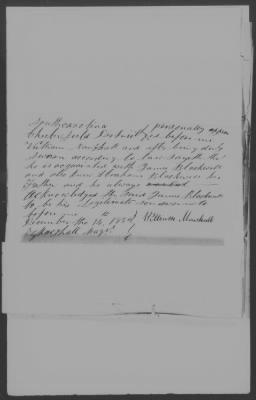 South carolina
Chesterfield District } personally appear
William Marshall and after being duly
Sworn according to law sayeth that
he is acquainted with James Blackwell
and also knew Abraham Blackwell his
Father and he always
acknowledged the said James Blackwell
to be his Legitimate son sworn to
before me
December the 14, 1854 } William Marshall
Marshall Magt }